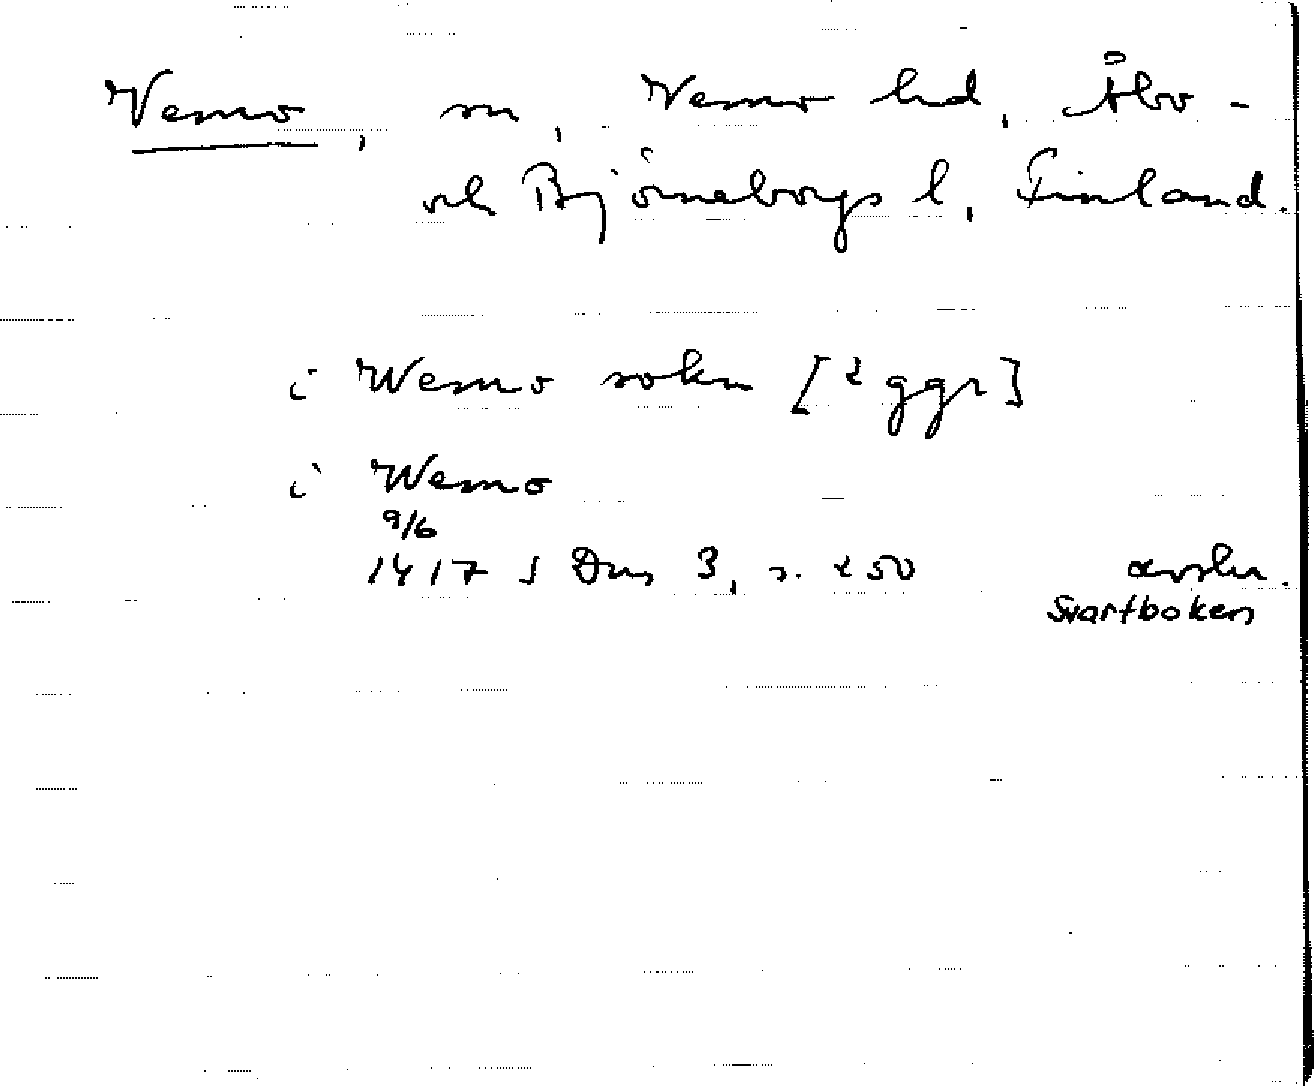 Vemo, sn, Vemo hd, Åbo-
och Björneborgs l, Finland.
i Wemo sokn [2 ggr]
i Wemo
9/6
1417 S Dns 3, s. 250 avskr.
Svartboken